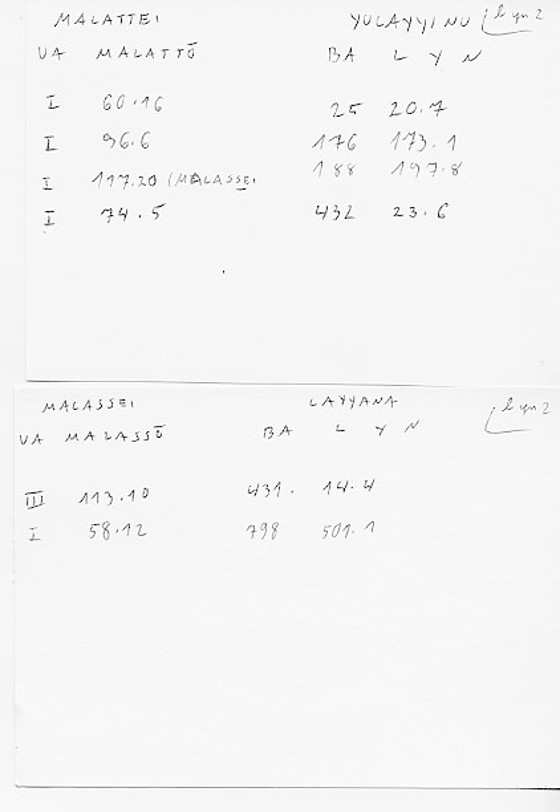 MALATTEI YULAYYINU
UA MALATTŌ BA L Y N
I 60.16 25 20.7
I 96.6 176 173.1
I 117.20 (MALASSEI 188 197.8
I 74.5 432 23.6
MALASSEI LAYYANA
UA MALASSŌ BA L Y N
III 113.10 431. 14.4
I 58.12 798 501.1